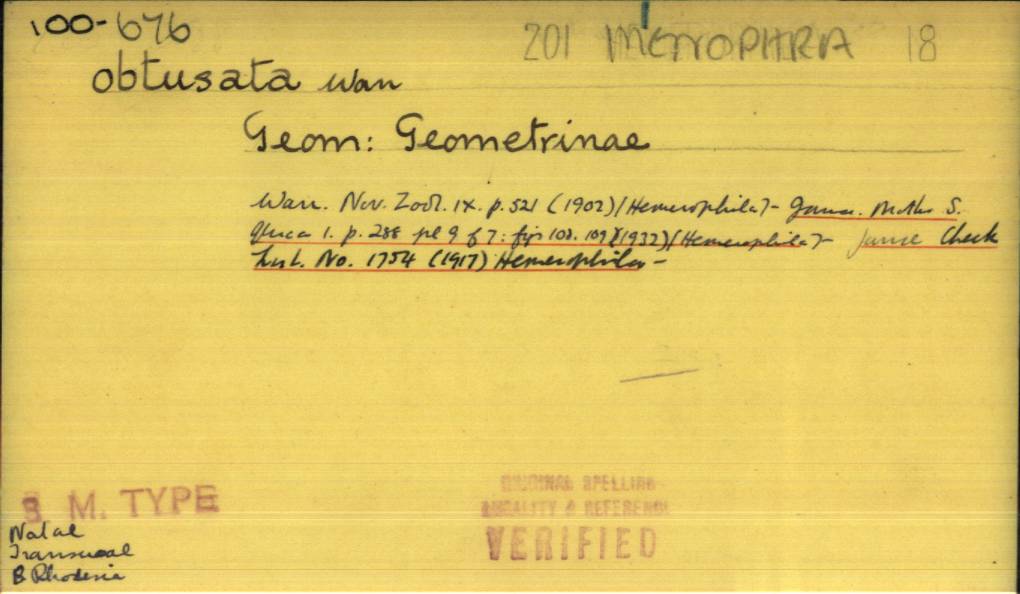 100-676
201 MENOPHRA 18
obtusata Warr
Geom: Geometrinae
Warr. Nov. Zool. IX. p. 521 (1902) (Hemerophila)- Janse. Moths S.
Africa 1. p. 288 pl 9 f 7: figs 108. 109 (1932) (Hemerophila)- Janse Check
List. No. 1754 (1917) Hemerophila -
B M. TYPE
ORIGINAL SPELLING
LOCALITY & REFERENCE
VERIFIED
Natal
Transvaal
B Rhodesia